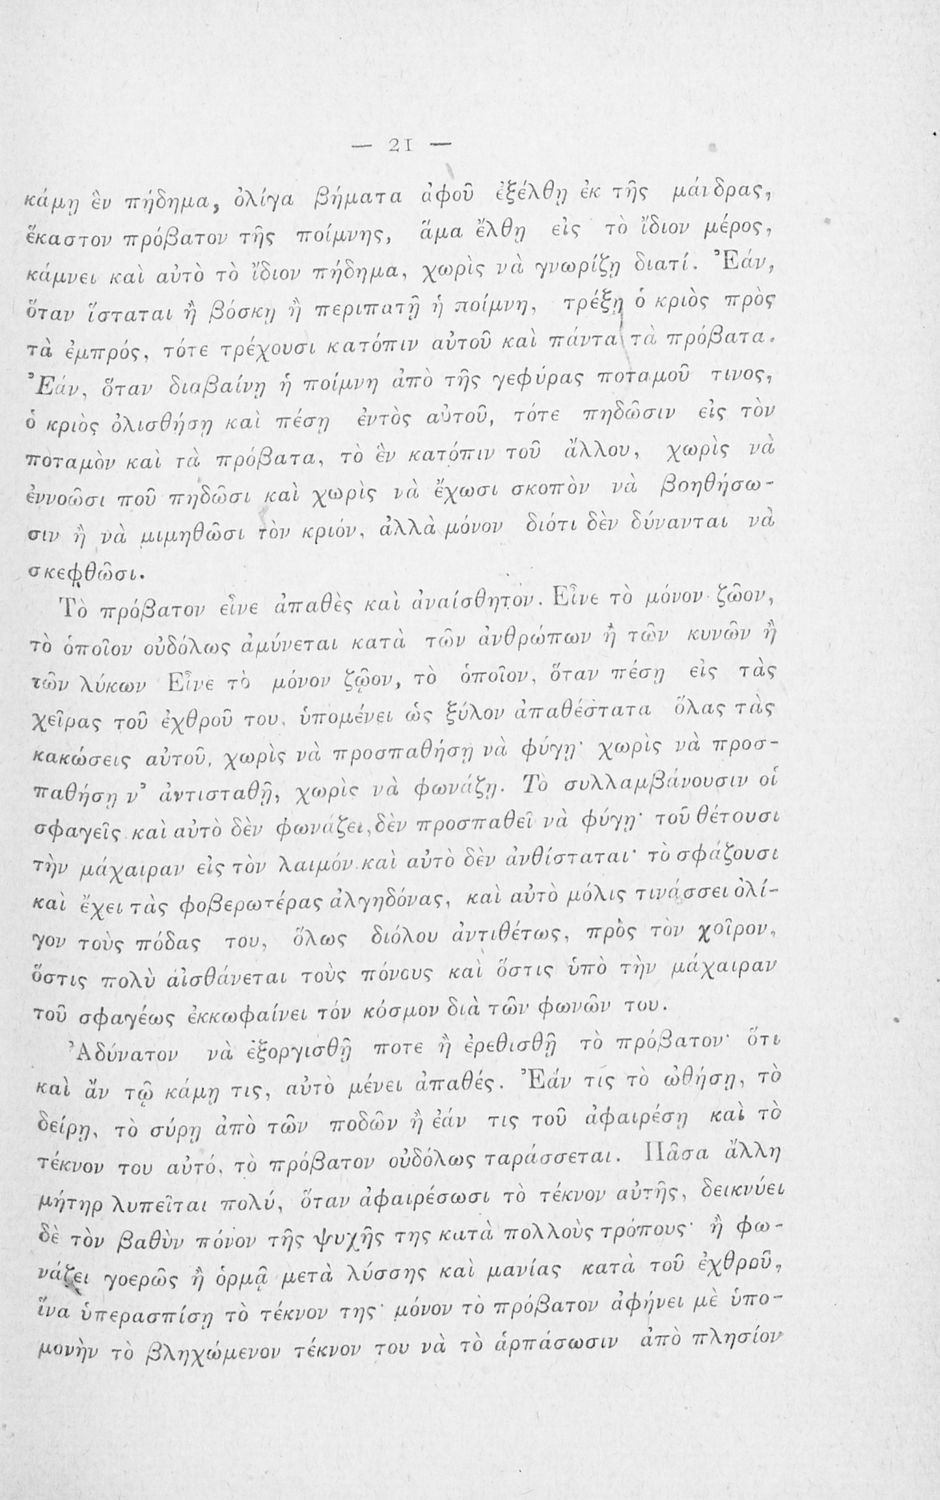 — 21 —
κάμῃ ἓν πήδημα, ὀλίγα βήματα ἀφοῦ ἐξέλθῃ ἐκ τῆς μάνδρας,
ἕκαστον πρόβατον τῆς ποίμνης, ἅμα ἔλθῃ εἰς τὸ ἴδιον μέρος,
κάμνει καὶ αὐτὸ τὸ ἴδιον πήδημα, χωρὶς νὰ γνωρίζῃ διατί. Ἐάν,
ὅταν ἵσταται ἢ βόσκῃ ἢ περιπατῇ ἡ ποίμνη, τρέξῃ ὁ κριὸς πρὸς
τὰ ἐμπρός, τότε τρέχουσι κατόπιν αὐτοῦ καὶ πάντα τὰ πρόβατα.
Ἐάν, ὅταν διαβαίνῃ ἡ ποίμνη ἀπὸ τῆς γεφύρας ποταμοῦ τινος,
ὁ κριὸς ὀλισθήσῃ καὶ πέσῃ ἐντὸς αὐτοῦ, τότε πηδῶσιν εἰς τὸν
ποταμὸν καὶ τὰ πρόβατα, τὸ ἓν κατόπιν τοῦ ἄλλου, χωρὶς νὰ
ἐννοῶσι ποῦ πηδῶσι καὶ χωρὶς νὰ ἔχωσι σκοπὸν νὰ βοηθήσω-
σιν ἢ νὰ μιμηθῶσι τὸν κριόν, ἀλλὰ μόνον διότι δὲν δύνανται νὰ
σκεφθῶσι.
Τὸ πρόβατον εἶνε ἀπαθὲς καὶ ἀναίσθητον. Εἶνε τὸ μόνον ζῶον,
τὸ ὁποῖον οὐδόλως ἀμύνεται κατὰ τῶν ἀνθρώπων ἢ τῶν κυνῶν ἢ
τῶν λύκων Εἶνε τὸ μόνον ζῷον, τὸ ὁποῖον, ὅταν πέσῃ εἰς τὰς
χεῖρας τοῦ ἐχθροῦ του, ὑπομένει ὡς ξύλον ἀπαθέστατα ὅλας τὰς
κακώσεις αὐτοῦ, χωρὶς νὰ προσπαθήσῃ νὰ φύγῃ· χωρὶς νὰ προσ-
παθήσῃ ν' ἀντισταθῇ, χωρὶς νὰ φωνάζῃ. Τὸ συλλαμβάνουσιν οἱ
σφαγεῖς καὶ αὐτὸ δὲν φωνάζει, δὲν προσπαθεῖ νὰ φύγῃ· τοῦ θέτουσι
τὴν μάχαιραν εἰς τὸν λαιμόν καὶ αὐτὸ δὲν ἀνθίσταται· τὸ σφάζουσι
καὶ ἔχει τὰς φοβερωτέρας ἀλγηδόνας, καὶ αὐτὸ μόλις τινάσσει ὀλί-
γον τοὺς πόδας του, ὅλως διόλου ἀντιθέτως, πρὸς τὸν χοῖρον,
ὅστις πολὺ αἰσθάνεται τοὺς πόνους καὶ ὅστις ὑπὸ τὴν μάχαιραν
τοῦ σφαγέως ἐκκωφαίνει τόν κόσμον διὰ τῶν φωνῶν του.
Ἀδύνατον νὰ ἐξοργισθῇ ποτε ἢ ἐρεθισθῇ τὸ πρόβατον· ὅτι
καὶ ἄν τῷ κάμῃ τις, αὐτὸ μένει ἀπαθές. Ἐάν τίς τὸ ὠθήσῃ, τὸ
δείρῃ, τὸ σύρῃ ἀπὸ τῶν ποδῶν ἢ ἐάν τις τοῦ ἀφαιρέσῃ καὶ τὸ
τέκνον του αὐτό, τὸ πρόβατον οὐδόλως ταράσσεται. Πᾶσα ἄλλη
μήτηρ λυπεῖται πολύ, ὅταν ἀφαιρέσωσι τὸ τέκνον αὐτῆς, δεικνύει
δὲ τὸν βαθὺν πόνον τῆς ψυχῆς της κατὰ πολλοὺς τρόπους· ἢ φω-
νάζει γοερῶς ἢ ὁρμᾷ μετὰ λύσσης καὶ μανίας κατὰ τοῦ ἐχθροῦ,
ἵνα ὑπερασπίσῃ τὸ τέκνον της· μόνον τὸ πρόβατον ἀφήνει μὲ ὑπο-
μονὴν τὸ βληχώμενον τέκνον του νὰ τὸ ἁρπάσωσιν ἀπὸ πλησίον